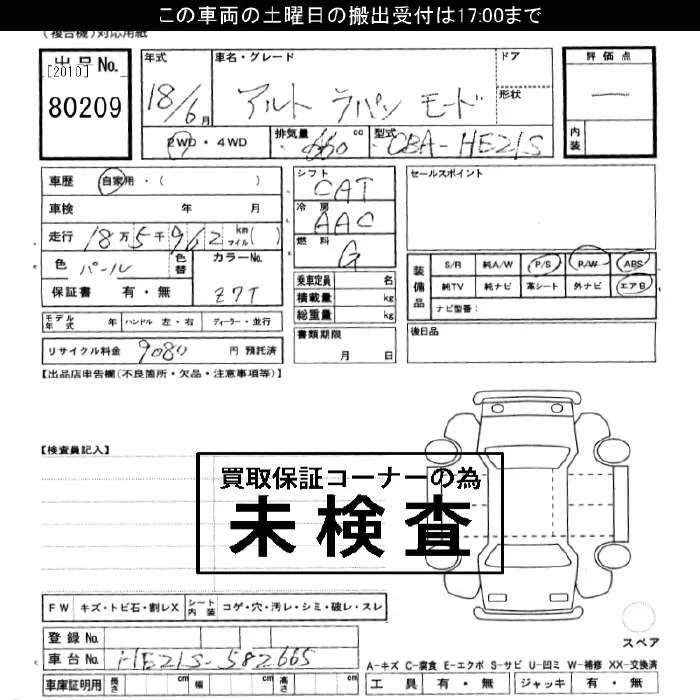 この車両の土曜日の搬出受付は17:00まで
(複合機)対応用紙
出品No.
[2010]
80209
年式
18/6月
車名・グレード
アルト ラパン モード
ドア
形状
評価点
―
内装
2WD・4WD
排気量
660 cc
型式
CBA-HE21S
車歴 自家用・( )
車検 年 月
走行 18万5千962 km マイル( )
色 パール
色替
カラーNo.
Z7T
保証書 有・無
シフト
CAT
冷房
AAC
燃料
G
乗車定員 名
積載量 kg
総重量 kg
セールスポイント
装備品
S/R 純A/W P/S P/W ABS
純TV 純ナビ 革シート 外ナビ エアB
ナビ型番:
モデル年式 年 ハンドル 左・右 ディーラー・並行
リサイクル料金 9080 円 預託済
書類期限
月 日
後日品
【出品店申告欄(不良箇所・欠品・注意事項等)】
【検査員記入】
買取保証コーナーの為
未検査
FW キズ・トビ石・割レX シート内装 コゲ・穴・汚レ・シミ・破レ・スレ
スペア
登録No.
車台No. HE21S-582665
A-キズ C-腐食 E-エクボ S-サビ U-凹ミ W-補修 XX-交換済
車庫証明用 長さ cm 幅 cm 高さ cm
工具 有・無 ジャッキ 有・無